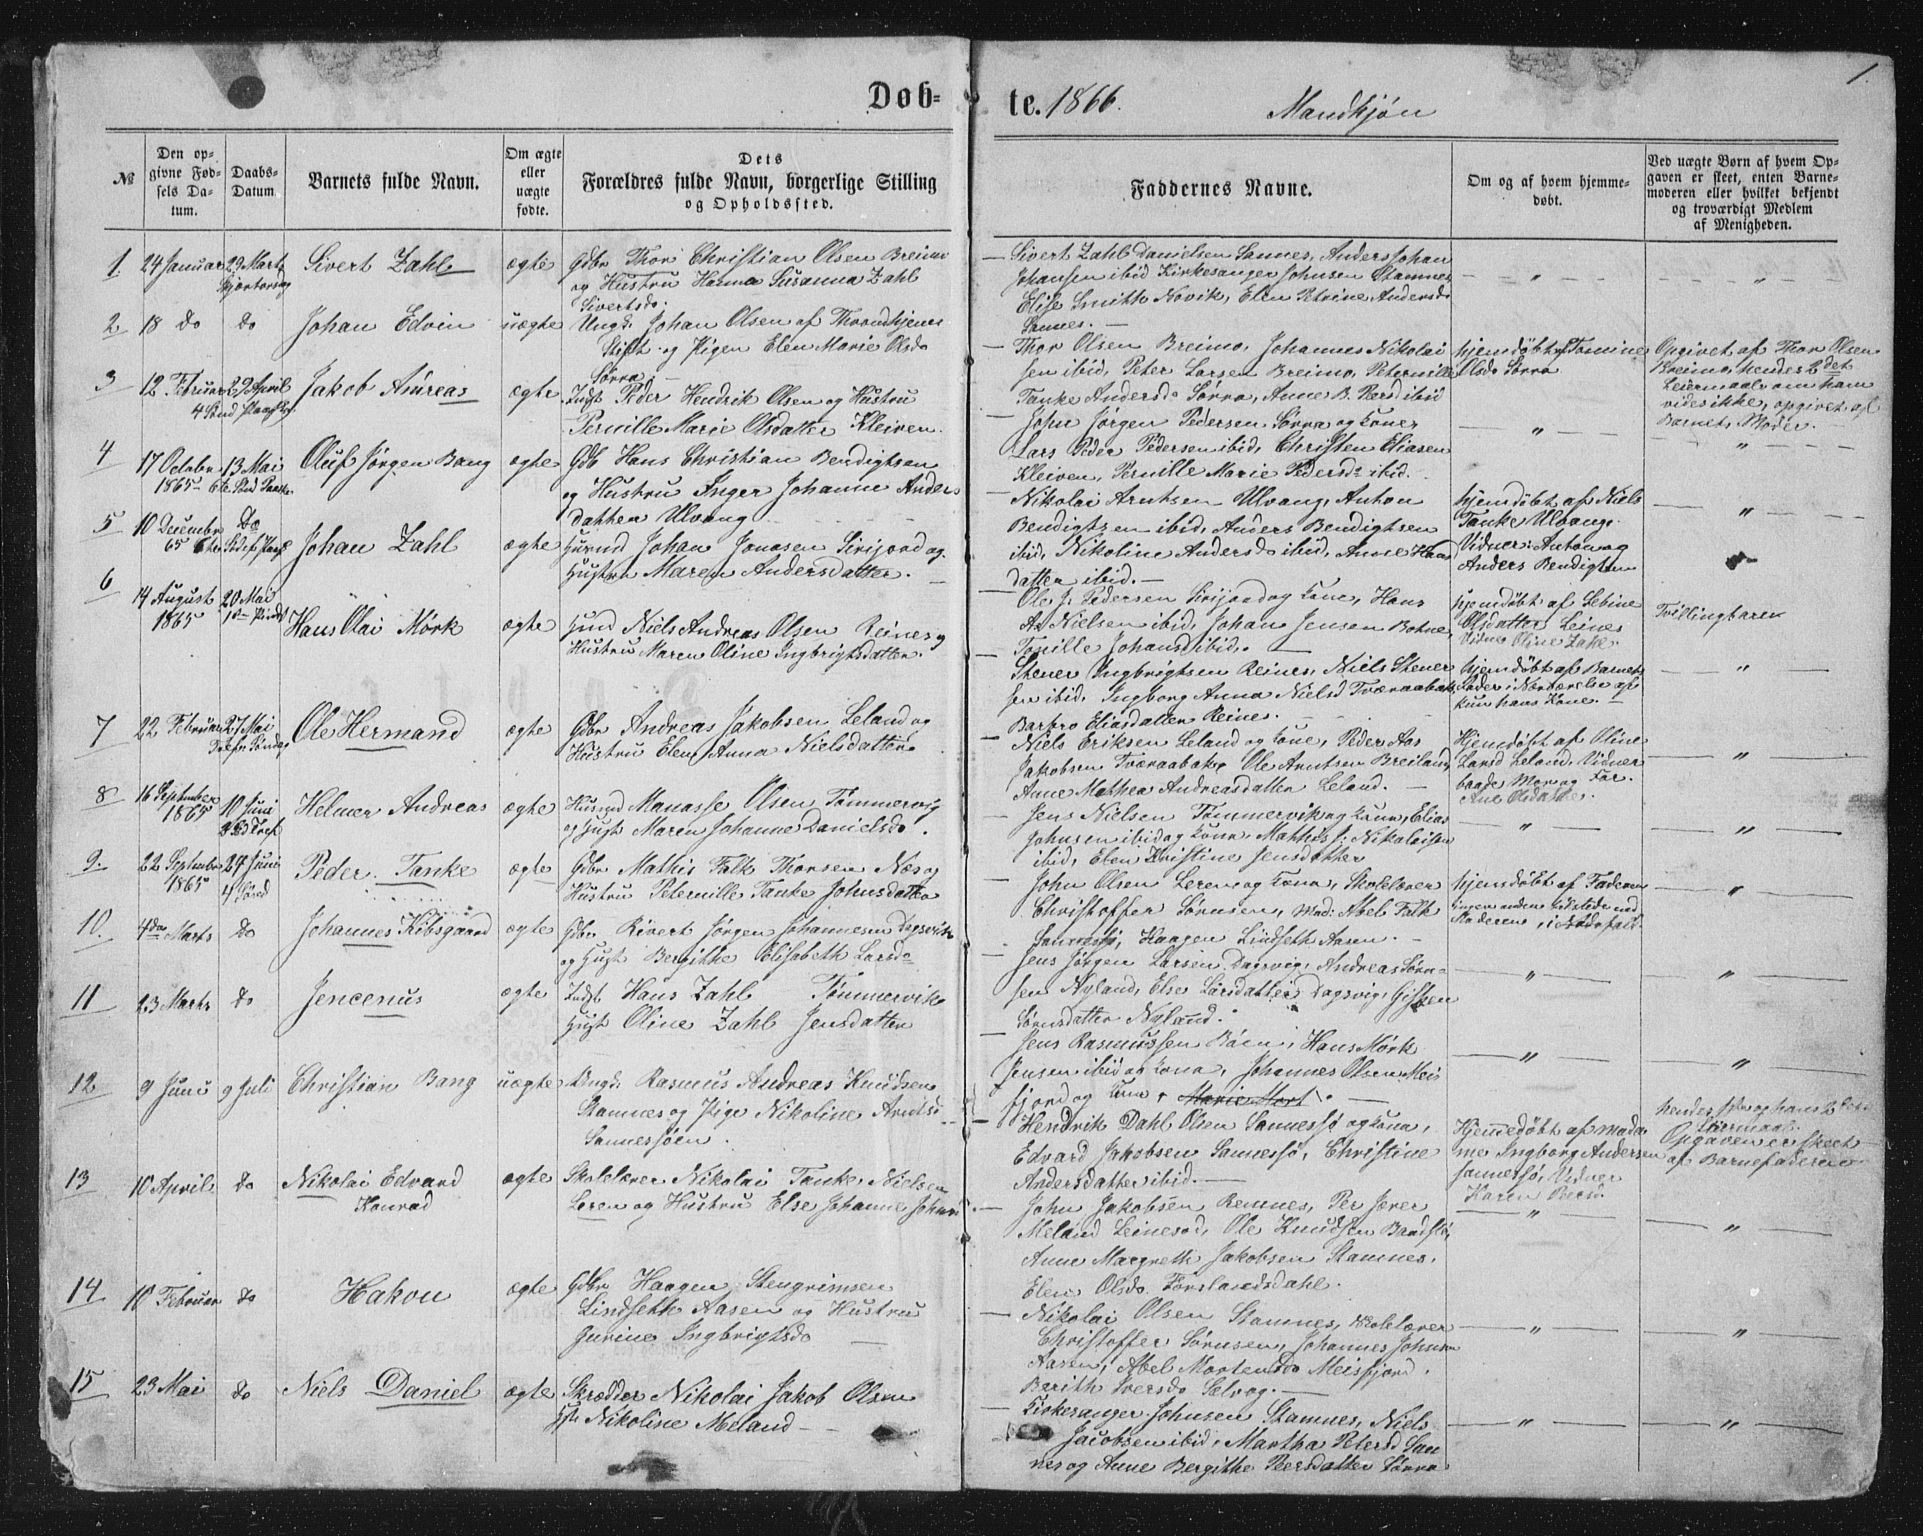 Døb-
te. 1866.
Mandkjøn
1
№
Den op-
givne Fød-
sels Da-
tum.
Daabs-
Datum.
Barnets fulde Navn.
Om ægte
eller
uægte
fødte.
Dets
Forældres fulde Navn, borgerlige Stilling
og Opholdssted.
Faddernes Navne.
Om og af hvem hjemme-
døbt.
Ved uægte Børn af hvem Op-
gaven er skeet, enten Barne-
moderen eller hvilket bekjendt
og troværdigt Medlem
af Menigheden.
1. 24 Januar 29 Marts Sivert Zahl ægte Gdbr Thor Christian Olsen Breimo
Skjærtorsdag og Hustru Hanna Susanna Zahl
Sivertsd.
Sivert Zahl Danielsen Sannes, Anders Johan
Johansen ibid Kirkesanger Johnsen Stamnes
Elise Smith Novik, Elen Petrine Andersd
Sannes.
2 18 do do Johan Edvin uægte Ungk. Johan Olsen af Throndhjems
Stift og Pigen Elen Marie Olsd
Sørra.
Thor Olsen Breimo, Johannes Nikolai
sen ibid, Peter Larsen Breimo, Peternille
Tanke Andersd Sørra, Anne B. Larsd ibid
hjemdøbt af Tomine
Olsd Sørra
Opgivet af Thor Olsen
Breimo, hendes 2det
Leiermaal, om ham
vides ikke, opgivet af
Barnets Moder.
3 12 Februar 29 April Jakob Andreas ægte Indst Peder Hendrik Olsen og Hustru
4 Sønd Paaske Pernille Marie Olsdatter Kleiven
John Jørgen Pedersen Sørra og Kone,
Lars Peder Pedersen ibid, Christen Eliasen
Kleiven, Pernille Marie Pedersd ibid.
4 17 Octobr 13 Mai Oluf Jørgen Bang ægte Gdb Hans Christian Bendigtsen
1865 6te Sønd Paaske og Hustru Inger Johanne Anders
datter Ulvang
Nikolai Arntsen Ulvang, Anton
Bendigtsen ibid, Anders Bendigtsen
ibid, Nikoline Andersd ibid, Anne Hans
datter ibid.
hjemdøbt af Niels
Tanke Ulvang.
Vidner: Anton og
Anders Bendigtsen
5 10 Decembr do Johan Zahl ægte Huusmd Johan Jonasen Sirijord og
65 Hustru Maren Andersdatter.
Ole J. Pedersen Sirijord og Kone, Hans
A. Nielsen ibid, Johan Jensen Bohne,
Tonille Johansd ibid.
hjemdøbt af Sebine
Olsdatter Leines
Vidne Oline Zahl.
Tvillingbaren
6 14 August 20 Mai Hans Olai Mørk ægte Hmd Niels Andreas Olsen Reines og
1865 1ste Pindsd Hustru Maren Oline Ingbrigtsdatter.
Stener Ingbrigtsen Reines, Niels Stener
sen ibid, Ingborg Anna Nielsd Tværaabak
Barbro Eliasdatter Reines.
hjemdøbt af Barnets
Fader i Nærværelse af
kun hans Kone.
7 22 Februar 27 Mai Ole Hermand ægte Gdbr Andreas Jakobsen Leland og
Tref. Søndag Hustru Elen Anna Nielsdatter.
Niels Eriksen Leland og Kone, Peder Aas
Jakobsen Tværaabak, Ole Arntsen Breiland,
Anne Mathea Andreasdatter Leland.
Hjemdøbt af Oline
Larsd Leland, Vidner
baade Mor og Far.
Ane Olsdatter.
8 16 September 10 Juni Helmer Andreas ægte Huusmd Manasse Olsen Tømmervig
1865 og Hust Maren Johanne Danielsd.
Jens Nielsen Tømmervik og Kone, Elias
Johnsen ibid og Kone, Mathis J. Nikolaisen
ibid, Elen Kristine Jensdatter
9. 22 September 24 Juni Peder Tanke ægte Gdbr Mathis Falk Thorsen Næs og
1865 4 Sønd Hustru Petternille Tanke Johnsdatter
John Olsen Leren og Kone, Skolelærer
Christoffer Sørnsen, Mad: Abel Falk
Sannessø, Haagen Lindseth Aasen.
hjemdøbt af Faderen
Ingen uden tilstede end
Moderen, i Nødsfald.
10. 4de Marts do Johannes Kibsgaard ægte Gdbr Rivert Jørgen Johannesen Dagsvik
og Hust Bergithe Elisabeth Larsd
Jens Jørgen Larsen Dagsvig, Andreas Sørn
sen Nyland, Else Larsdatter Dagsvig, Gisken
Sørnsdatter Nyland.
11 23 Marts do Jencenus ægte Indst Hans Zahl Tømmervik
Hust Oline Zahl Jensdatter
Jens Rasmussen Baen, Hans Mørk
Jensen ibid og Kone, Johannes Olsen Meis
fjord og Kone, Marie Mort.
12 9 Juni 9 Juli Christian Bang uægte Ungk. Rasmus Andreas Knudsen
Stamnes og Pige Nikoline Arntsd
Sannessøen.
Hendrik Dahl Olsen Sannessø og Kone,
Edvard Jakobsen Sannessø, Christine
Andersdatter ibid.
Hjemedøbt af Mada
me Ingborg Andersen
Sannessø, Vidner
Karen Bersd.
hendes 1ste og hans 2det
Leiermaal.
Opgaven er skeet
af Barnefaderen
13 10 April do Nikolai Edvard ægte Skolelærer Nikolai Tanke Nielsen
Konrad Leren og Hustru Else Johanne Johnsd
John Jakobsen Remnes, Per Jæger
Meland Leinesod, Ole Knudsen Bardslø,
Anne Margreth Jakobsen Stamnes,
Elen Olsd. Forslandsdahl.
14 10 Februar do Hakon ægte Gdbr Haagen Stengrimsen
Lindseth Aasen og Hustru
Gurine Ingbrigtsd
Nikolai Olsen Stamnes, Skolelærer
Christoffer Sørnsen, Johannes Johnsen
Aasen, Abel Mortensd Meisfjord.
Barith Iversd Selvog.
15 23 Mai do Niels Daniel ægte Skrædder Nikolai Jakob Olsen
Hst Nikoline Meland
Kirkesanger Johnsen Stamnes, Niels
Jacobsen ibid, Martha Petersd San
nes og Anne Bergithe Peersdatter Sørra